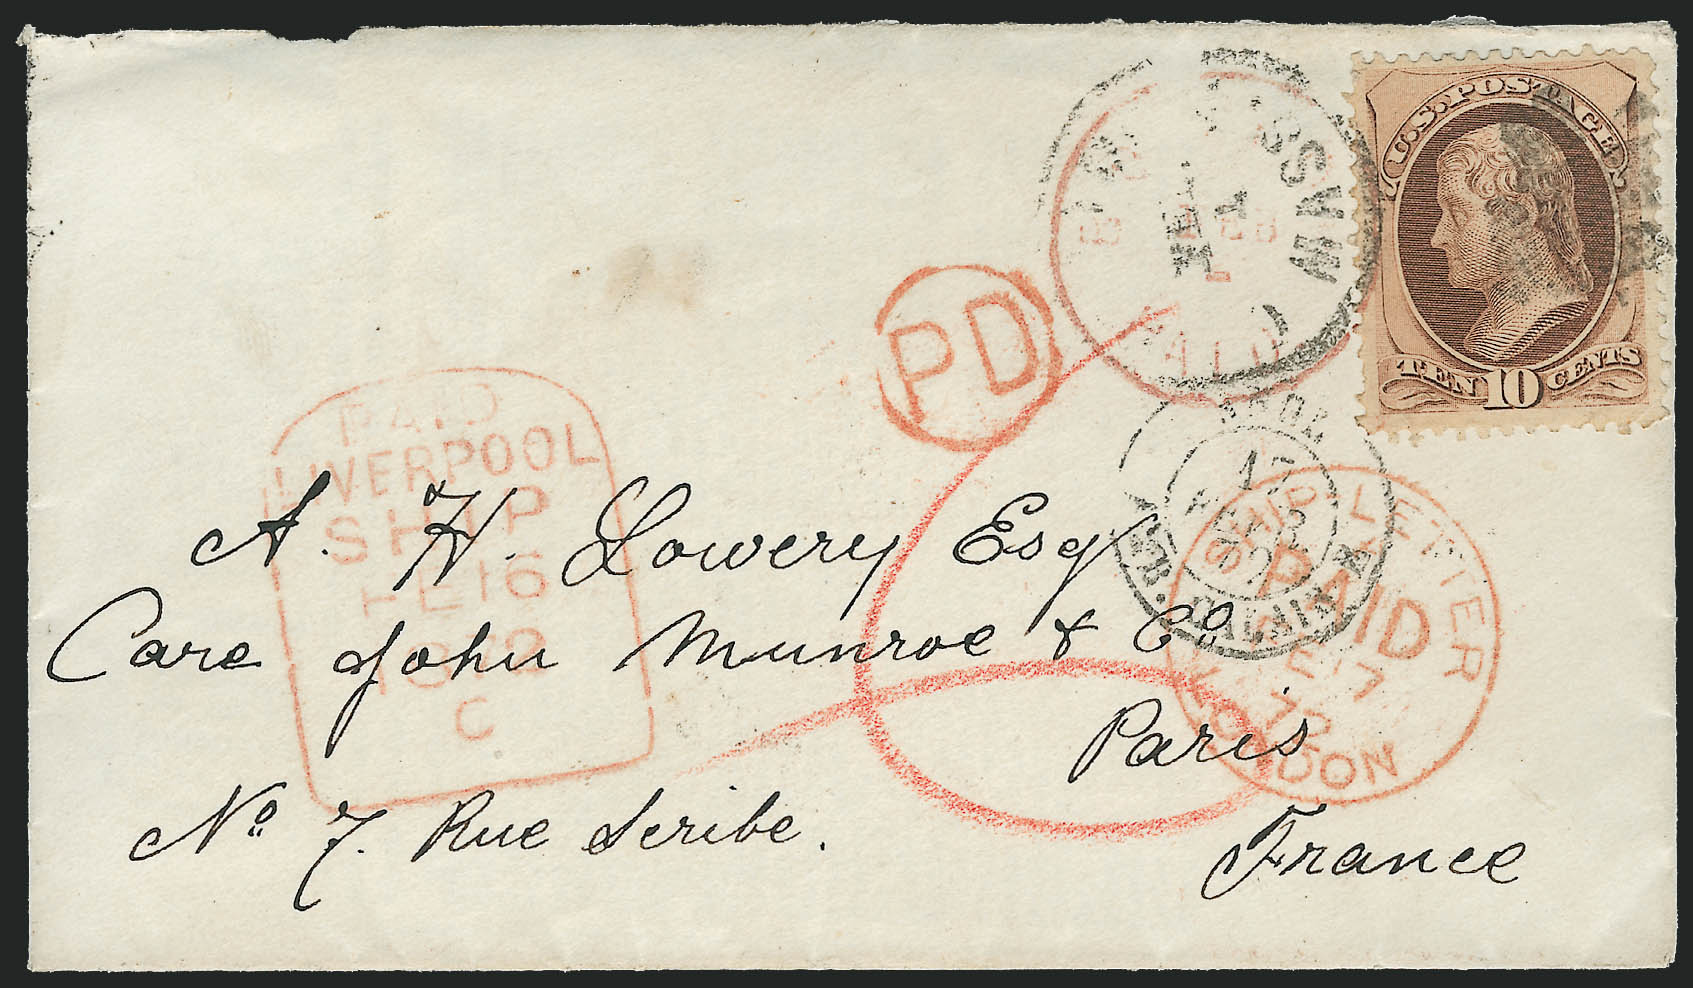 U.S. POSTAGE
TEN 10 CENTS
MASS.
PAID
PD
PAID
LIVERPOOL
SHIP
FE 16
1872
C
17
CALAIS
SHIP LETTER
PAID
17
72
LONDON
A. H. Lowery Esq
Care John Munroe & Co.
Paris
No. 7. Rue Scribe.
France